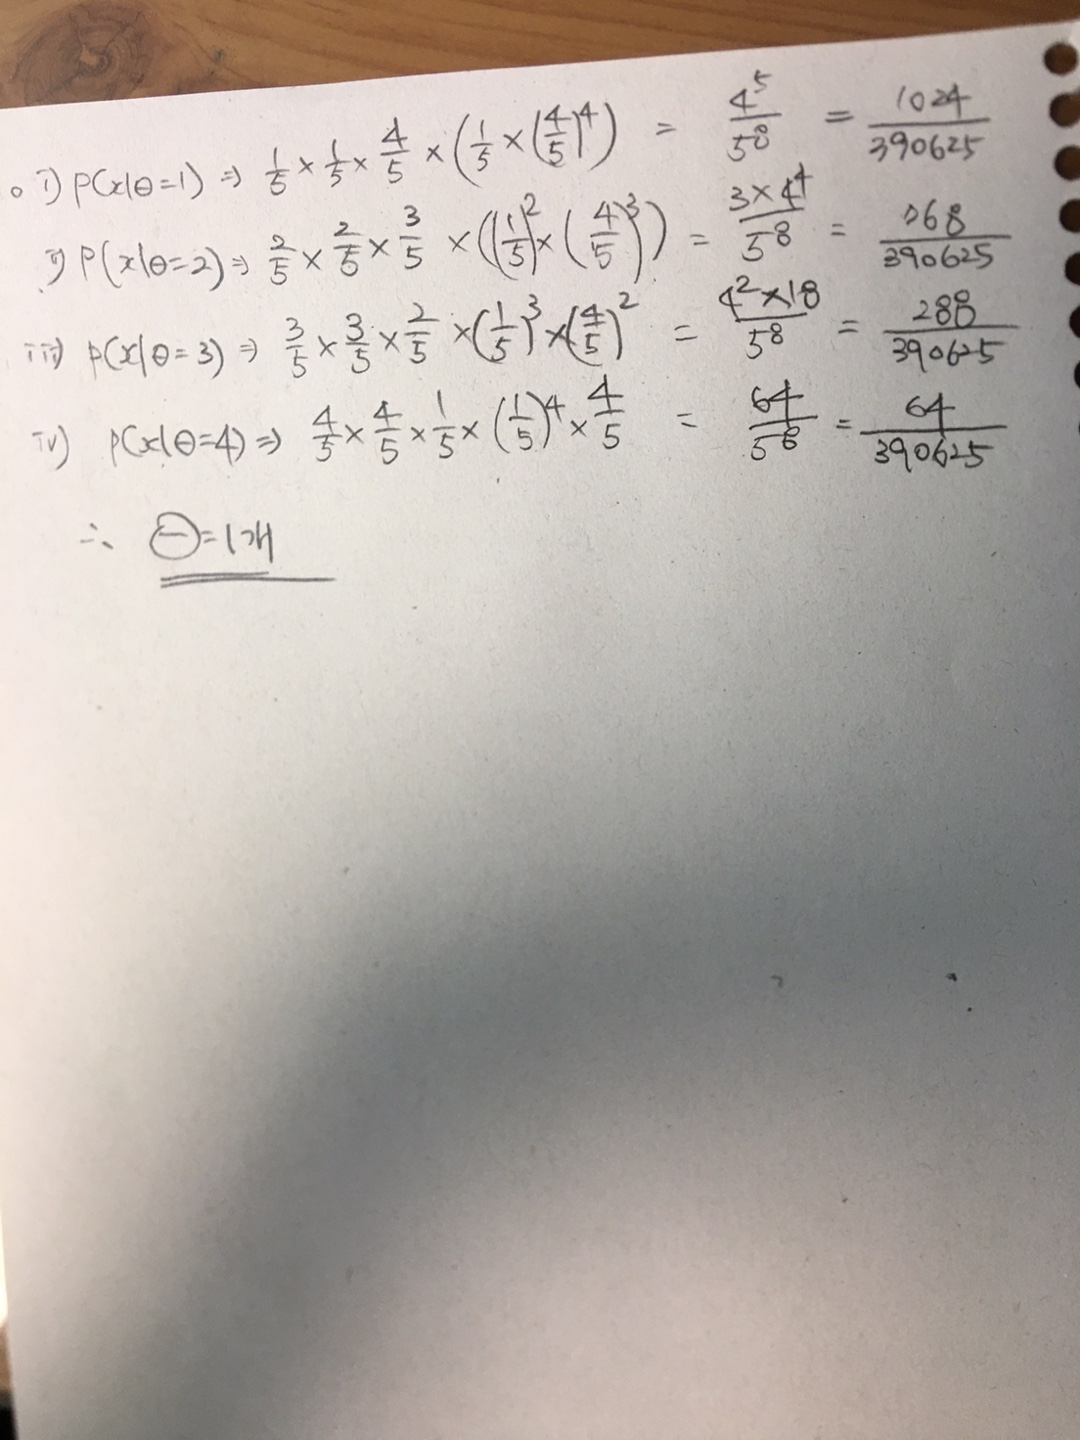 i) P(x|θ=1) ⇒ 1/5 × 1/5 × 4/5 × (1/5 × (4/5)^4) = 4^5/5^8 = 1024/390625
ii) P(x|θ=2) ⇒ 2/5 × 2/5 × 3/5 × ((1/5)^2 × (4/5)^3) = 3×4^4/5^8 = 768/390625
iii) P(x|θ=3) ⇒ 3/5 × 3/5 × 2/5 × (1/5)^3 × (4/5)^2 = 4^2×18/5^8 = 288/390625
iv) P(x|θ=4) ⇒ 4/5 × 4/5 × 1/5 × (1/5)^4 × 4/5 = 64/5^8 = 64/390625
∴ θ=1개